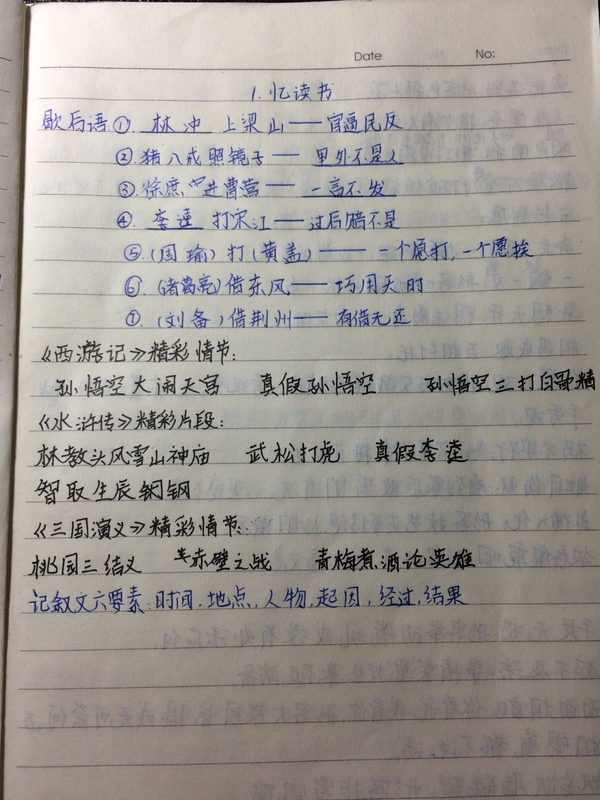 Date No:
1.忆读书
歇后语①.林冲 上梁山——官逼民反
②.猪八戒照镜子——里外不是人
③.徐庶中进曹营——一言不发
④.李逵打宋江——过后赔不是
⑤.(周瑜)打(黄盖)——一个愿打,一个愿挨
⑥.(诸葛亮)借东风——巧用天时
⑦.(刘备)借荆州——有借无还
《西游记》精彩情节:
孙悟空大闹天宫 真假孙悟空 孙悟空三打白骨精
《水浒传》精彩片段:
林教头风雪山神庙 武松打虎 真假李逵
智取生辰钢钢
《三国演义》精彩情节:
桃园三结义 赤壁之战 青梅煮酒论英雄
记叙文六要素:时间,地点,人物,起因,经过,结果